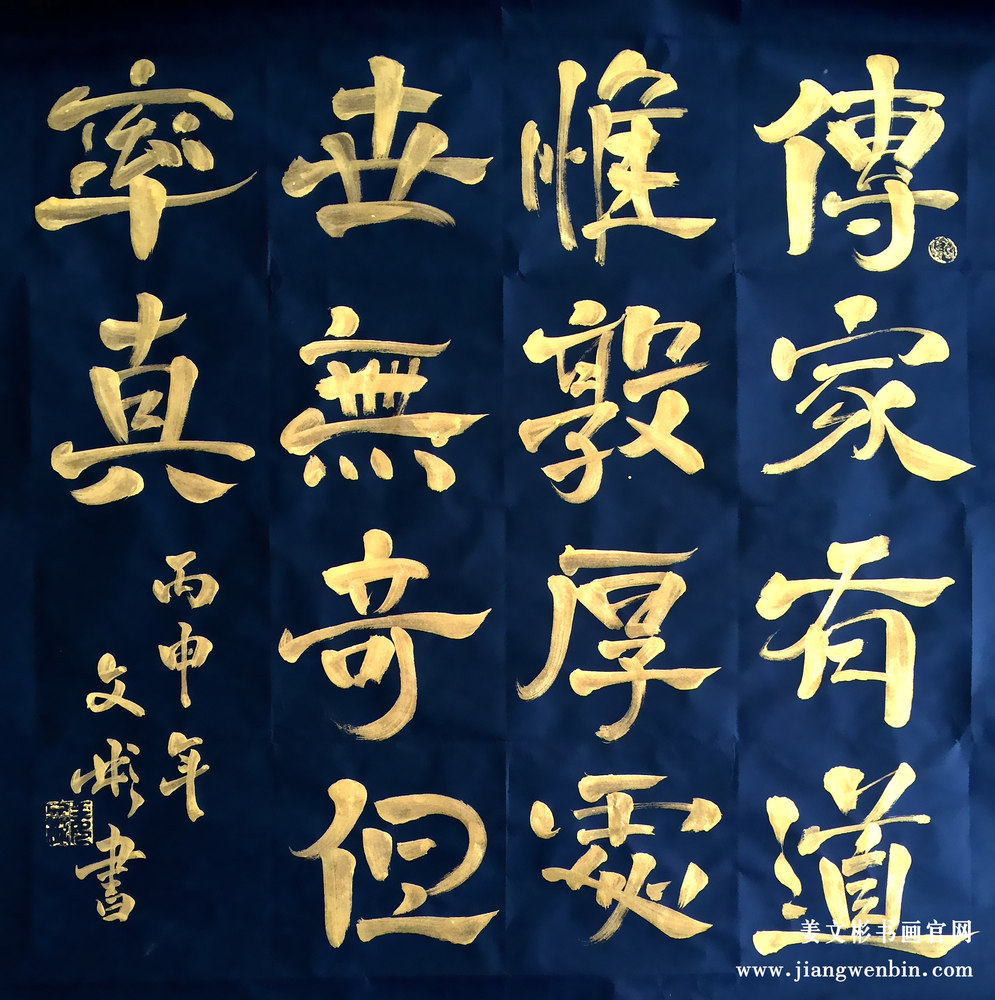 傳家有道
惟敦厚處
世無奇但
率真
丙申年
文彬書
姜文彬书画官网
www.jiangwenbin.com